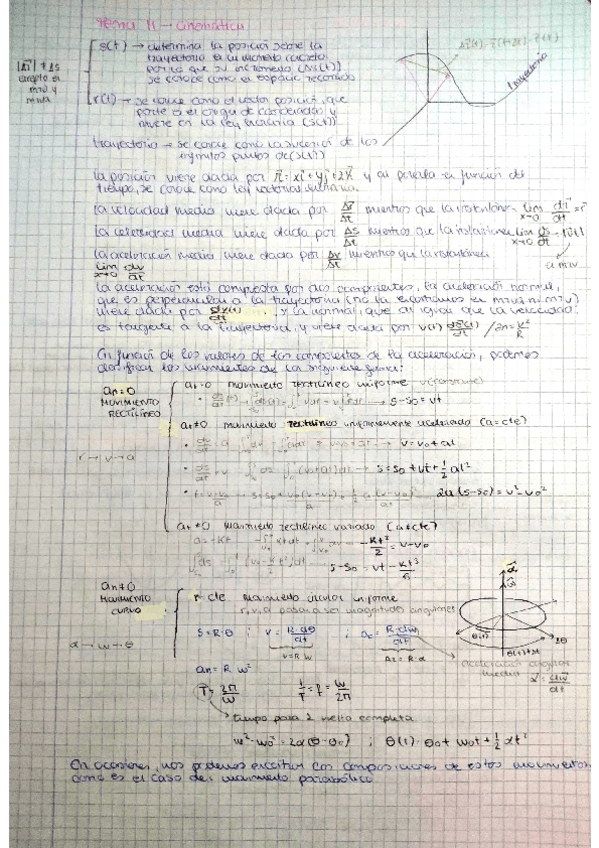 Tema 11 - Cinemática
s(t) → determina la posición sobre la
trayectoria en un momento concreto
por lo que su incremento (Δs(t))
se conoce como el espacio recorrido
|Δr⃗| ≠ Δs
excepto en
mru y
mrua
trayectoria
r(t) → se conoce como el vector posición, que
parte del origen de coordenadas y
muere en la ley horaria (s(t))
trayectoria → se conoce como la sucesión de los
infinitos puntos de (s(t))
La posición viene dada por r⃗ = xi⃗ + yj⃗ + zk⃗ y al ponerla en función del
tiempo, se conoce como ley vectorial horaria.
La velocidad media viene dada por Δr⃗/Δt mientras que la instantánea lim x→0 dr⃗/dt
La celeridad media viene dada por Δs/Δt mientras que la instantánea lim x→0 ds/dt
La aceleración media viene dada por Δv/Δt mientras que la instantánea
lim x→0 dv/dt
La aceleración está compuesta por dos componentes, la aceleración normal,
que es perpendicular a la trayectoria
viene dada por dv(t)/dt, y la normal, que al igual que la velocidad
es tangente a la trayectoria, y viene dada por v(t) / an = v²/R
En función de los valores de los componentes de la aceleración, podemos
clasificar los movimientos de la siguiente forma:
an = 0
MOVIMIENTO
RECTILÍNEO
r → v → a
at = 0 movimiento rectilíneo uniforme v(constante)
→ s - s0 = vt
at ≠ 0 movimiento rectilíneo uniformemente acelerado (a = cte)
· dv/dt = a → v = v0 + at
· ds/dt = v → s = s0 + vt + 1/2 at²
· 2a(s - s0) = v² - v0²
at ≠ 0 movimiento rectilíneo variado (a ≠ cte)
a = -Kt → -Kt²/2 = v - v0
s - s0 = vt - Kt³/6
an ≠ 0
MOVIMIENTO
CURVO
α → ω → θ
r cte movimiento circular uniforme
r, v, a pasan a ser magnitudes angulares
s = R·θ ; v = R·dθ/dt ; at = R·dω/dt
v = R·ω
at = R·α
aceleración angular
media α⃗ = dω⃗/dt
an = R ω²
T = 2π/ω
1/T = f = ω/2π
tiempo para 1 vuelta completa
ω² - ω0² = 2α(θ - θ0) ; θ(t) = θ0 + ω0t + 1/2 αt²
En ocasiones, nos podemos encontrar con composiciones de estos movimientos
como es el caso del movimiento parabólico